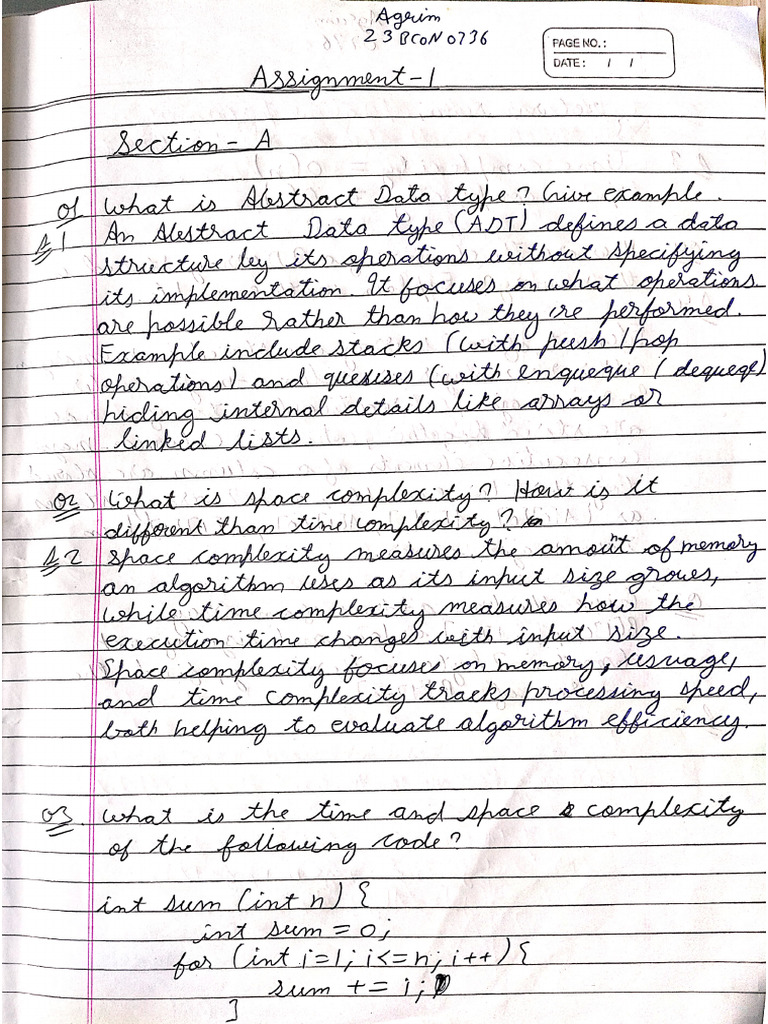 Agrim
23BCON0736
PAGE NO.:
DATE: / /
Assignment-1
Section - A
Q1 What is Abstract Data type? Give example.
A1 An Abstract Data type (ADT) defines a data
structure by its operations without specifying
its implementation. It focuses on what operations
are possible rather than how they're performed.
Example include stacks (with push/pop
operations) and queues (with enqueque / dequeqe)
hiding internal details like arrays or
linked lists.
Q2 What is space complexity? How is it
different than time complexity?
A2 Space complexity measures the amount of memory
an algorithm uses as its input size grows,
while time complexity measures how the
execution time changes with input size.
Space complexity focuses on memory, usuage,
and time complexity tracks processing speed,
both helping to evaluate algorithm efficiency.
Q3. What is the time and space complexity
of the following code?
int sum (int n) {
int sum = 0;
for (int i=1; i<=n; i++) {
sum += i;
}